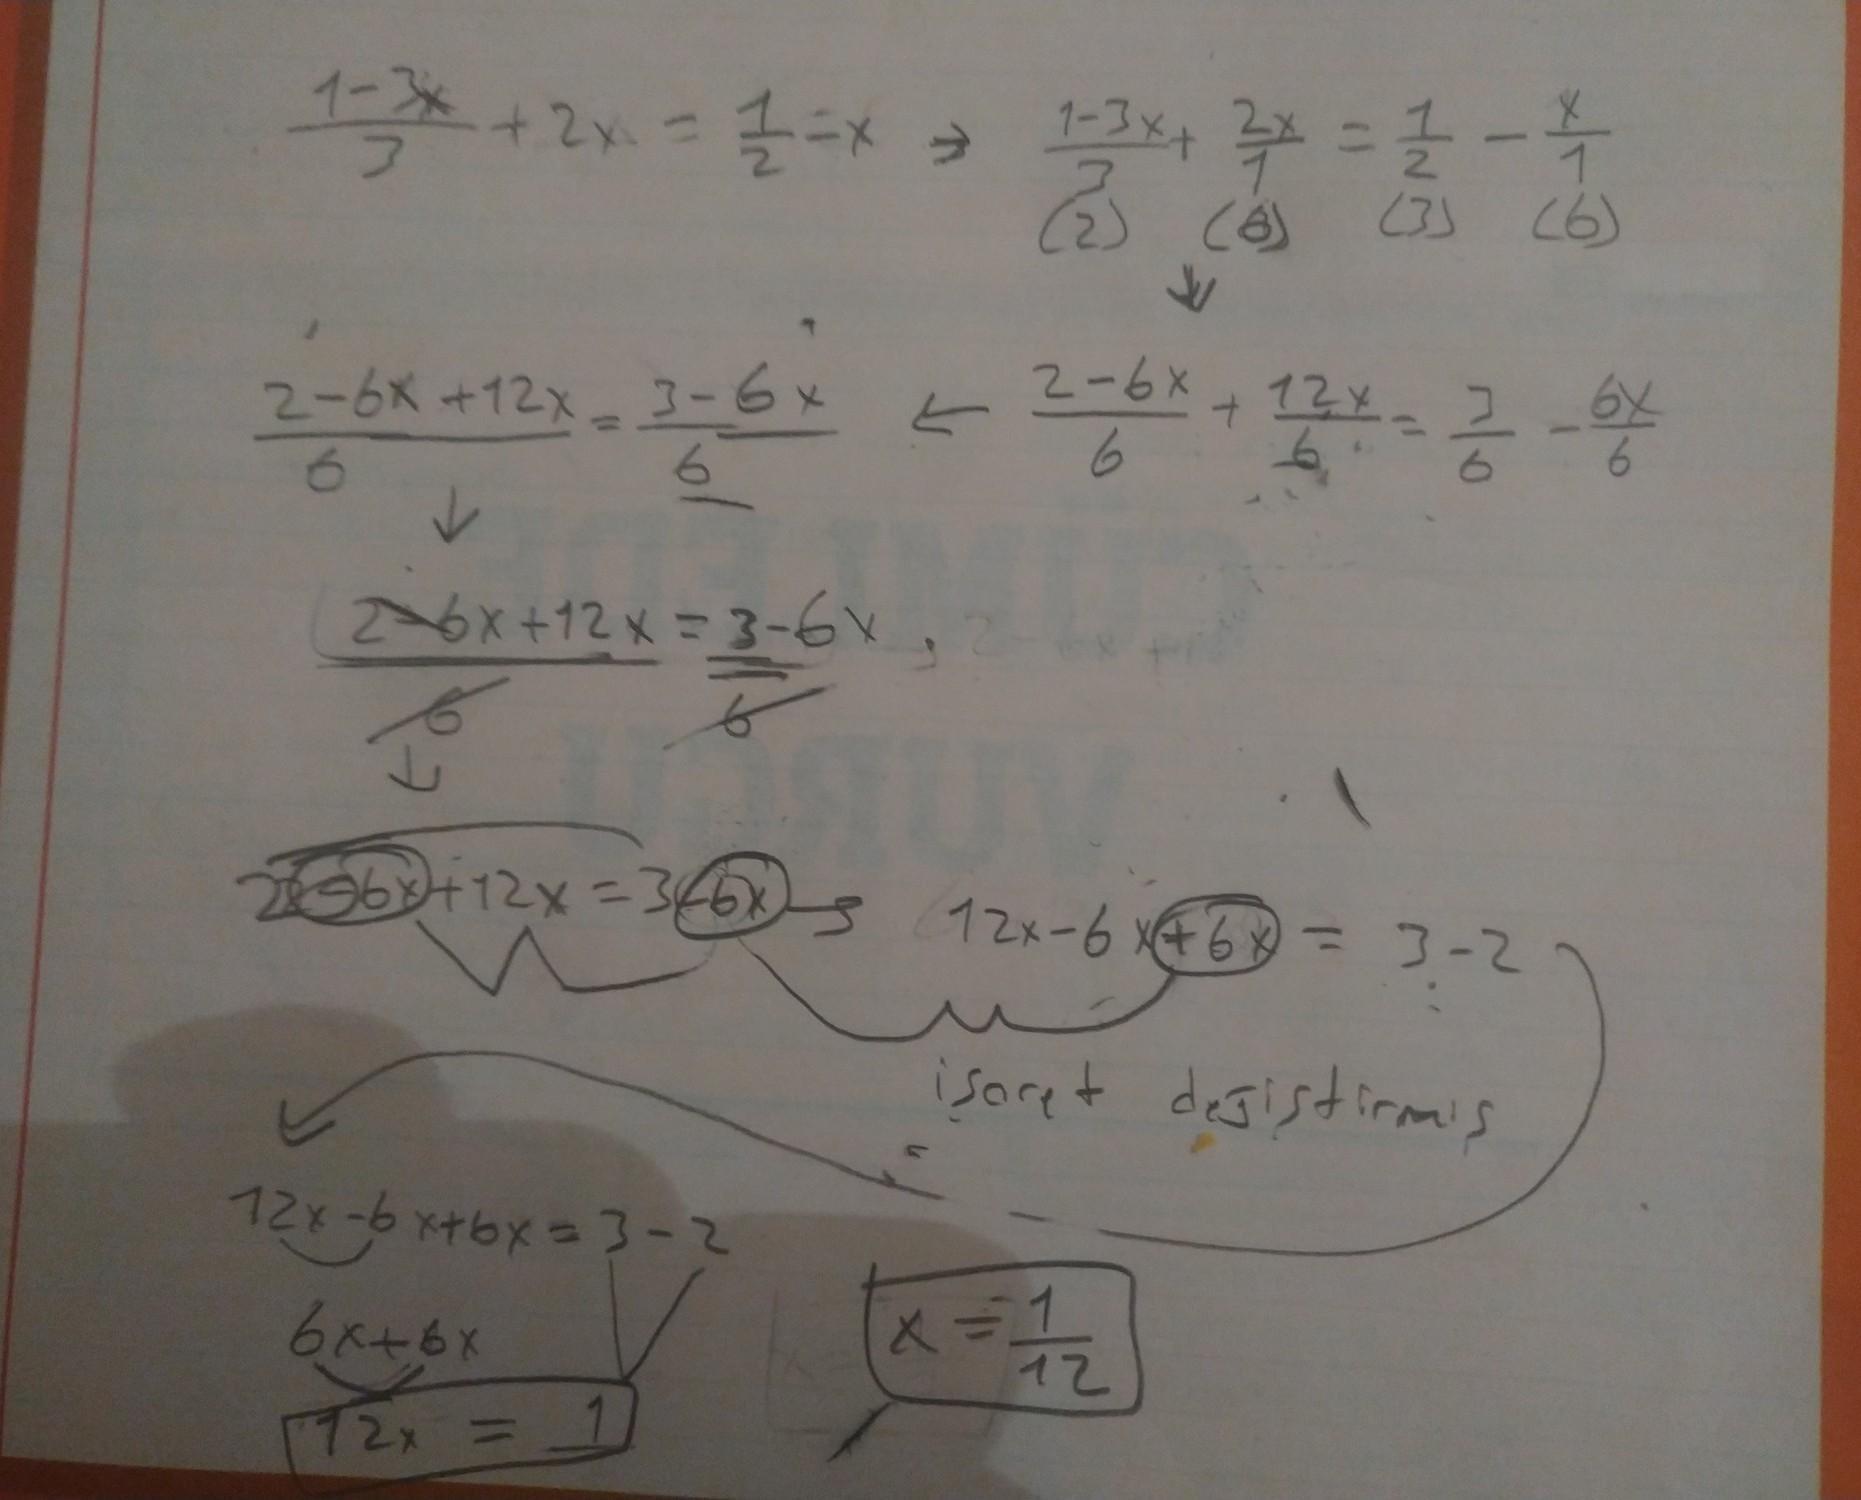 1-3x/3 + 2x = 1/2 - x → 1-3x/3 + 2x/1 = 1/2 - x/1
(2) (6) (3) (6)
2-6x/6 + 12x/6 = 3/6 - 6x/6
2-6x+12x/6 = 3-6x/6
2-6x+12x/6 = 3-6x/6
2-6x+12x = 3-6x → 12x-6x+6x = 3-2
işaret değiştirmiş
12x-6x+6x = 3-2
6x+6x
12x = 1
x = 1/12